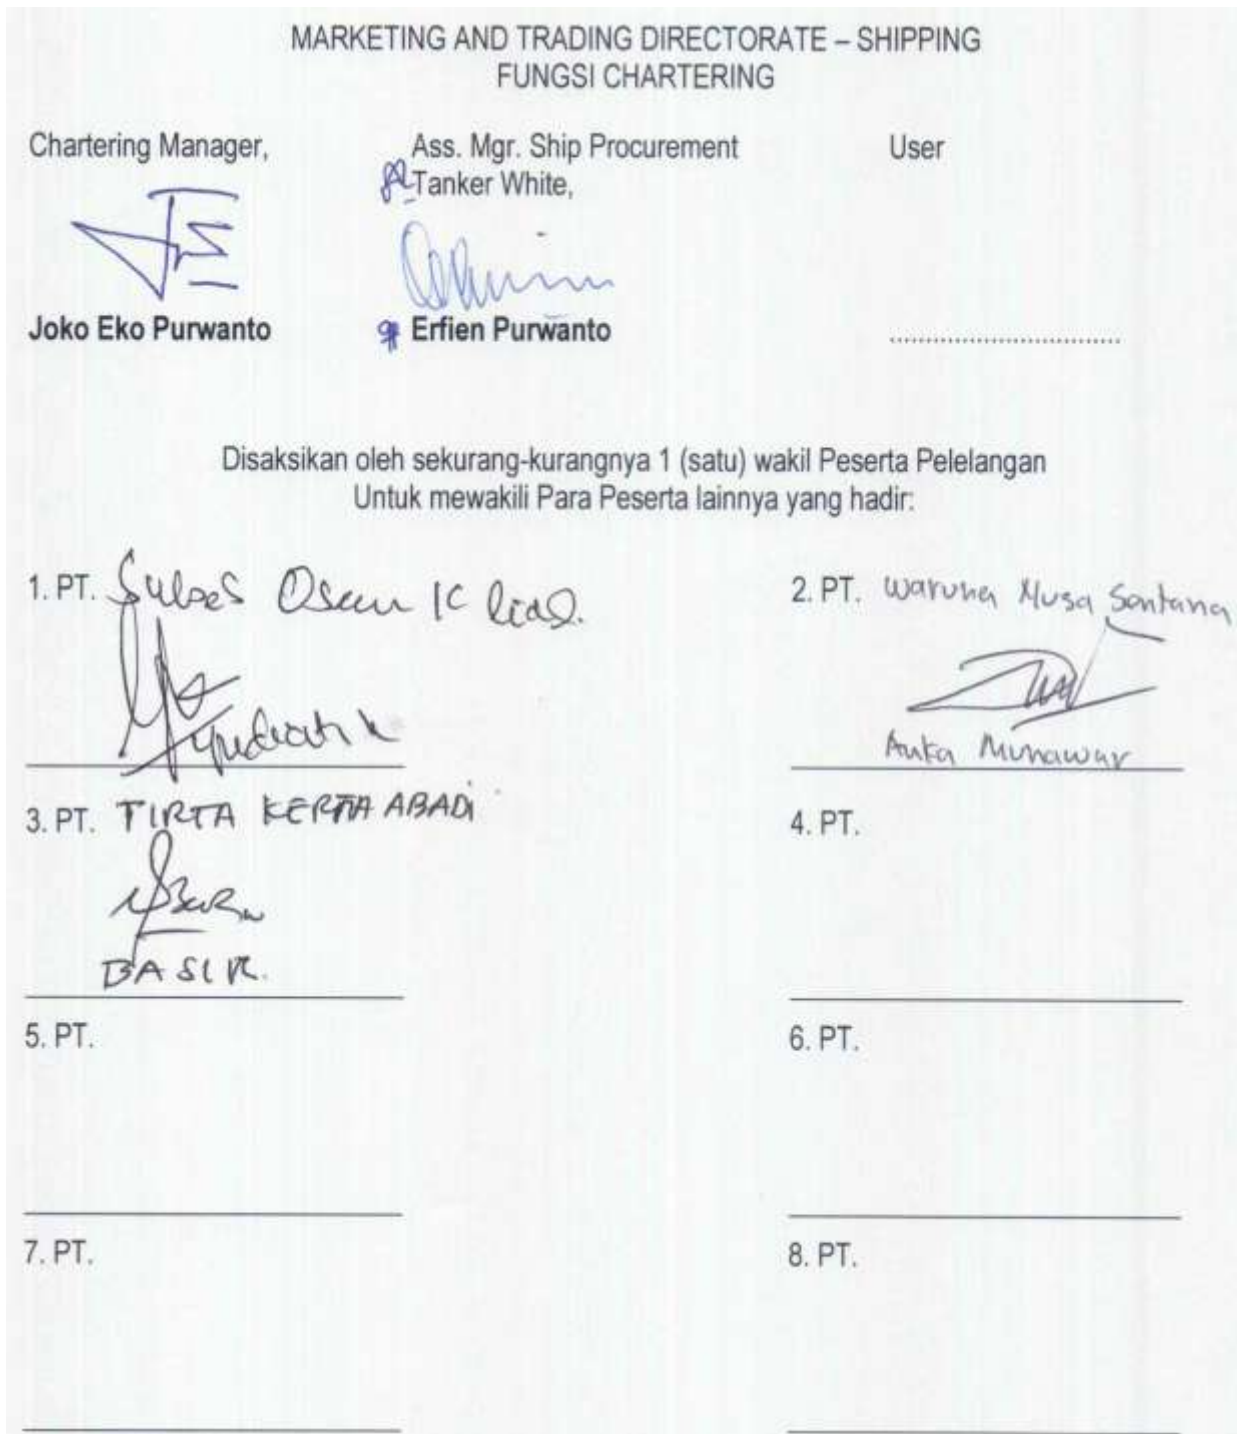 MARKETING AND TRADING DIRECTORATE – SHIPPING
FUNGSI CHARTERING
Chartering Manager,
Ass. Mgr. Ship Procurement
Tanker White,
User
Joko Eko Purwanto
Erfien Purwanto
..............................
Disaksikan oleh sekurang-kurangnya 1 (satu) wakil Peserta Pelelangan
Untuk mewakili Para Peserta lainnya yang hadir:
1. PT. Sukses Osean
2. PT. Waruna Nusa Sentana
Munawar
3. PT. TIRTA KERTA ABADI
BASIR.
4. PT.
5. PT.
6. PT.
7. PT.
8. PT.